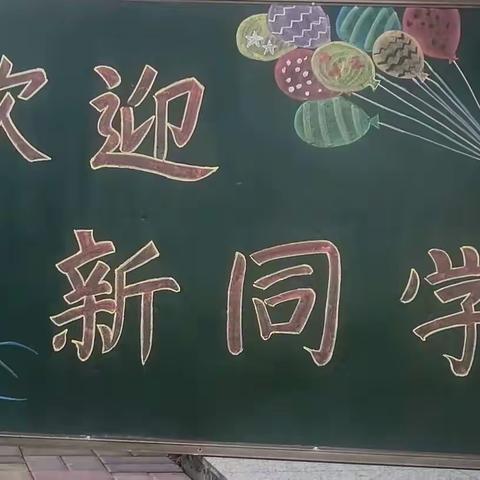 欢迎
新同学